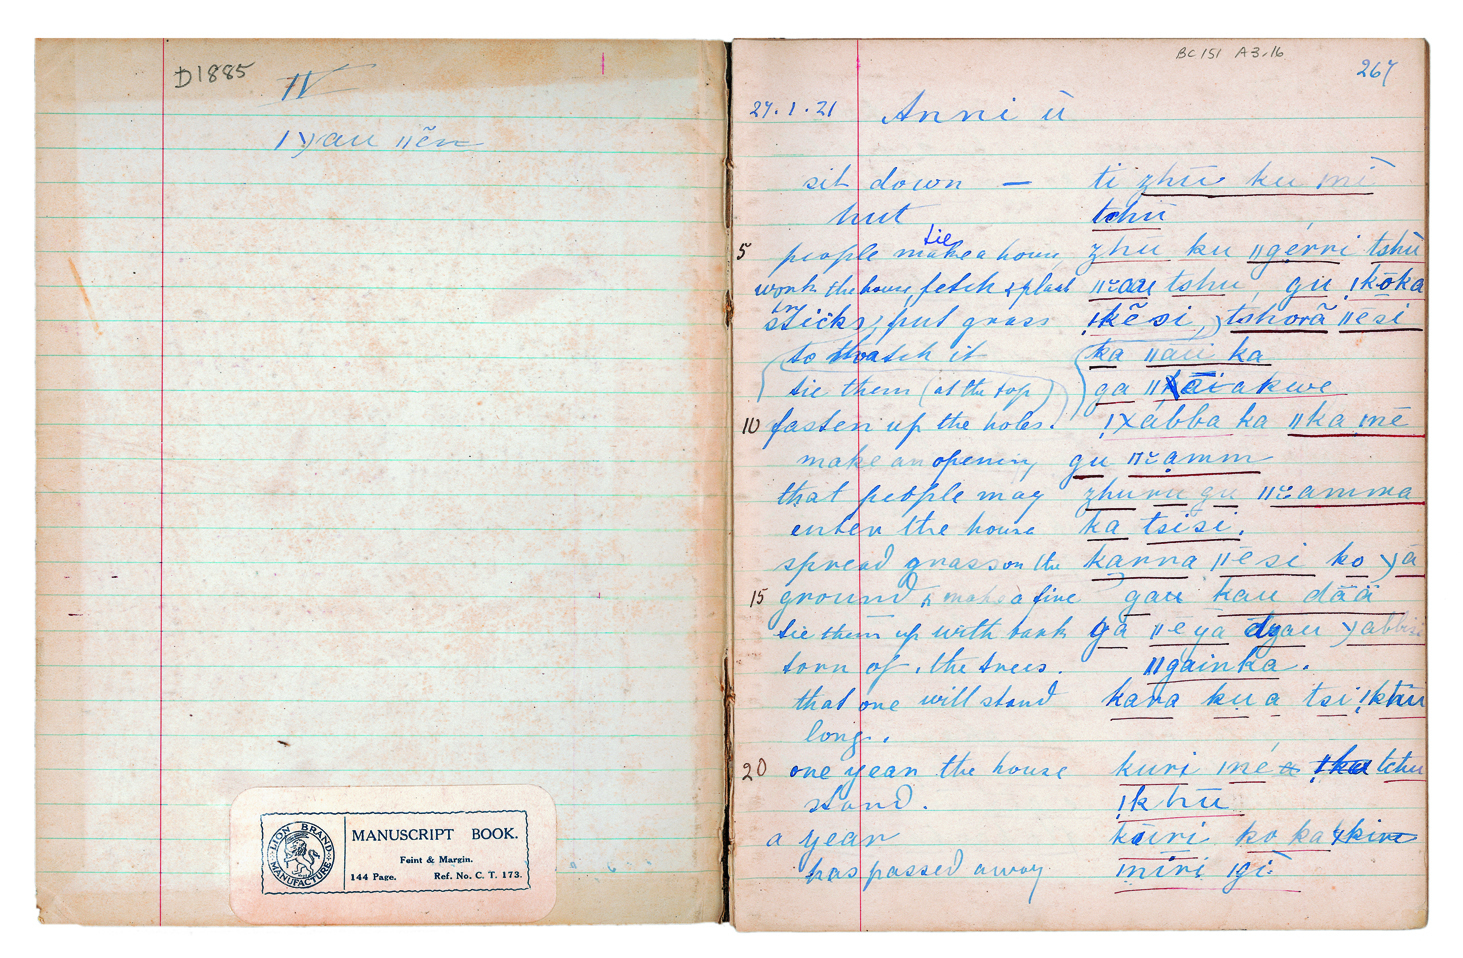 D1885
IV
BC 151 A3.16
267
27.1.21 Anni ù
sit down — ti zhū ku
hut tshū
tie
5 people make a house zhu ku ǁgérri tshū
work the house, fetch & plant tshu, gu ǃkōka
sticks, put grass ǃkẽsi, tshorã ǁēsi
to thatch it ka ǁāū ka
tie them (at the top) ga
10 fasten up the holes. ǃxábba ka ǁka ǀnē
make an opening gu
that people may zhuru gu
enter the house ka tsisi.
spread grass on the karra ǁēsi ko
15 ground, & make a fire gau kau dãã
tie them up with bark
torn of the trees. ǁgainka.
that one will stand kara ku a tsi ǃkhū
long.
20 one year the house kuri ǀné tchu
stand. ǃkhū
a year kuri ko ka
has passed away miri ǀgi
LION BRAND
MANUFACTURE
MANUSCRIPT BOOK.
Feint & Margin.
144 Page. Ref. No. C. T. 173.